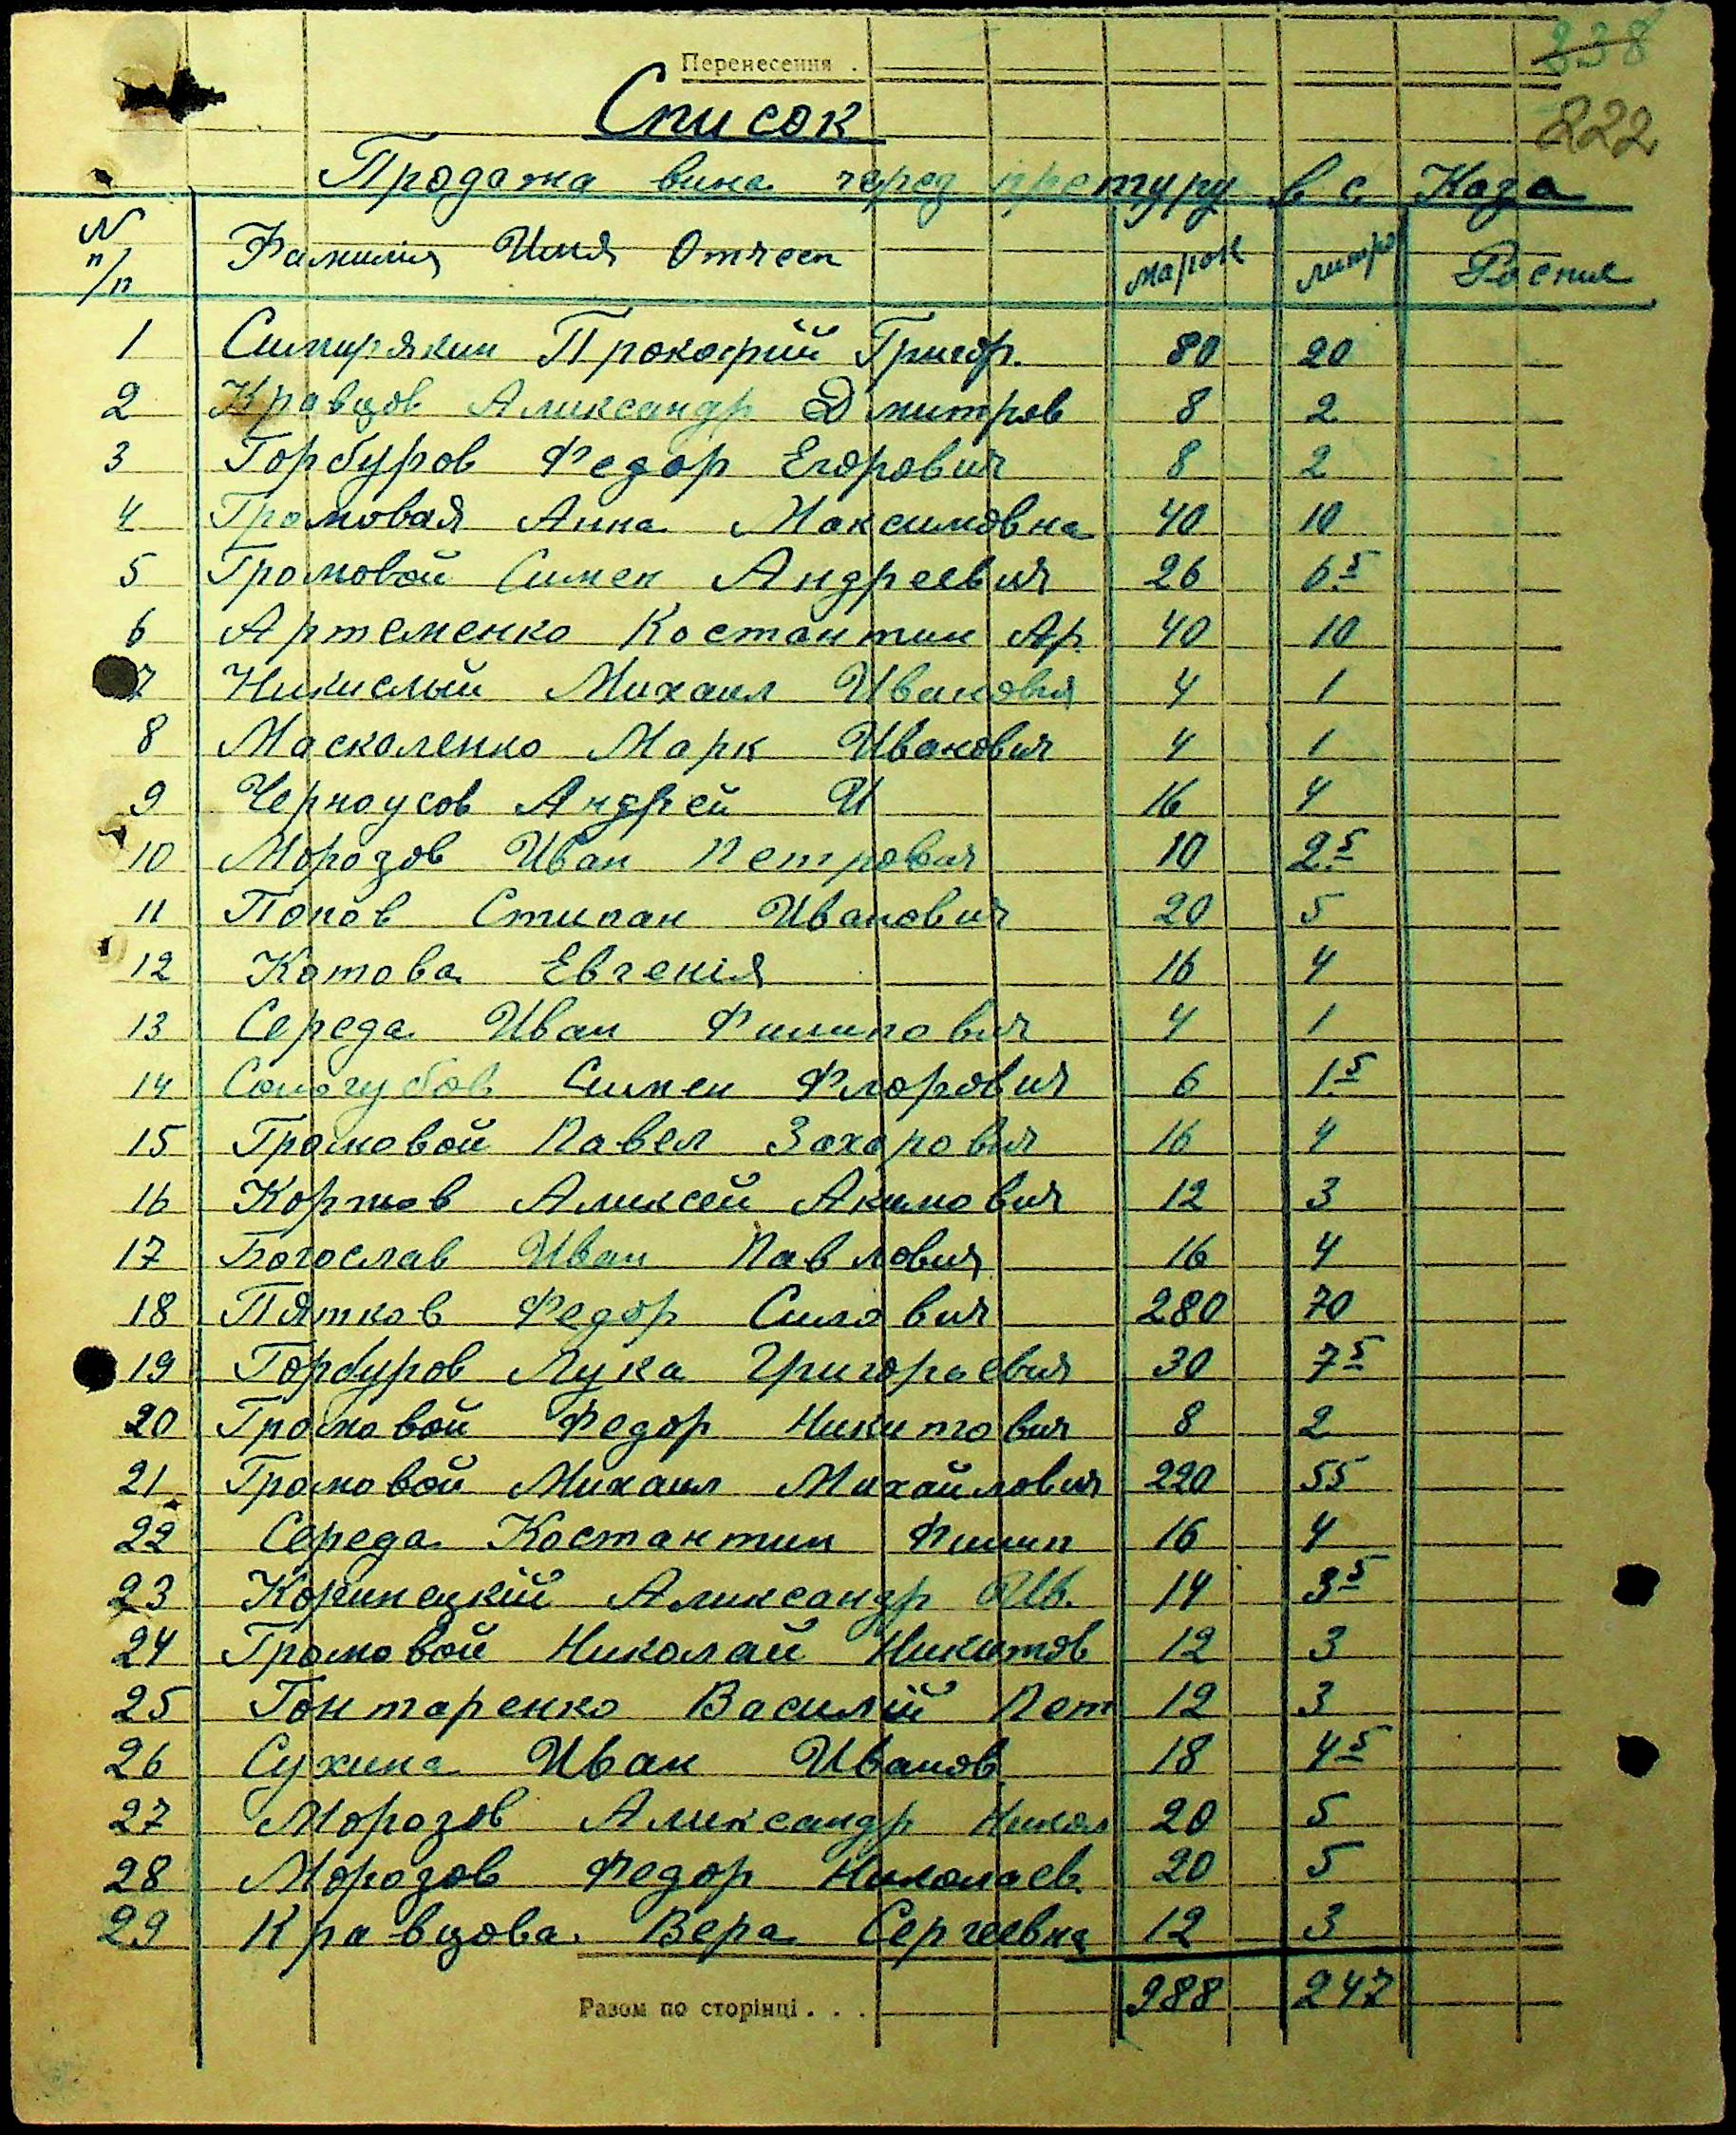 338
822
Перенесення .
Список
Продажа вина через претуру в с Каза
N п/п Фамилия Имя Отчест марок литр Роспис
1 Симирякин Прокофий Григор. 80 20
2 Кравцов Александр Дмитров 8 2
3 Горбуров Федор Егорович 8 2
4 Громовая Анна Максимовна 40 10
5 Громовой Симен Андреевич 26 6.5
6 Артеменко Костантин Ар. 40 10
7 Никислый Михаил Иванович 4 1
8 Маскаленко Марк Иванович 4 1
9 Черноусов Андрей И 16 4
10 Морозов Иван Петрович 10 2.5
11 Попов Стипан Иванович 20 5
12 Котова Евгенія 16 4
13 Середа Иван Филипович 4 1
14 Сологубов Симен Флорович 6 1.5
15 Громовой Павел Захарович 16 4
16 Коржов Аликсей Акимович 12 3
17 Богослав Иван Павлович 16 4
18 Пятков Федор Силович 280 70
19 Горбуров Лука Григораевич 30 7 5
20 Громовой Федор Никитович 8 2
21 Громовой Михаил Михайлович 220 55
22 Середа Костантин Филип 16 4
23 Александр Ив. 14 3 5
24 Громовой Николай Никитов 12 3
25 Гонтаренко Василій Пет 12 3
26 Сухина Иван Иванов. 18 4 5
27 Морозов Александр Никол 20 5
28 Морозов Федор Николаев. 20 5
29 Кравцова Вера Сергеевна 12 3
Разом по сторінці . . . 988 247